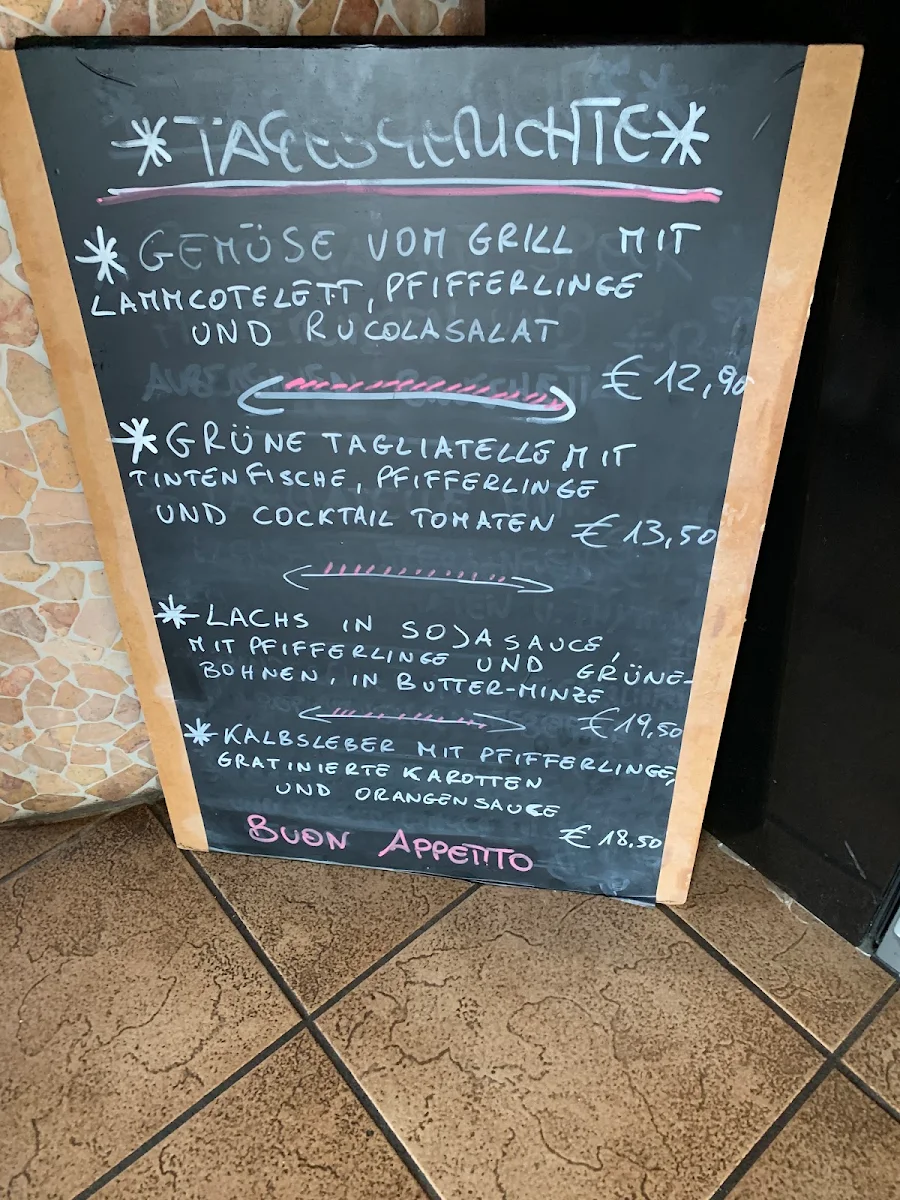 *TAGESGERICHTE*
* GEMÜSE VOM GRILL MIT
LAMMCOTELETT, PFIFFERLINGE
UND RUCOLASALAT
€ 12,90
* GRÜNE TAGLIATELLE MIT
TINTENFISCHE, PFIFFERLINGE
UND COCKTAIL TOMATEN € 13,50
* LACHS IN SOJASAUCE,
MIT PFIFFERLINGE UND GRÜNE-
BOHNEN, IN BUTTER-MINZE
€ 19,50
* KALBSLEBER MIT PFIFFERLINGE,
GRATINIERTE KAROTTEN
UND ORANGENSAUCE
€ 18.50
BUON APPETITO